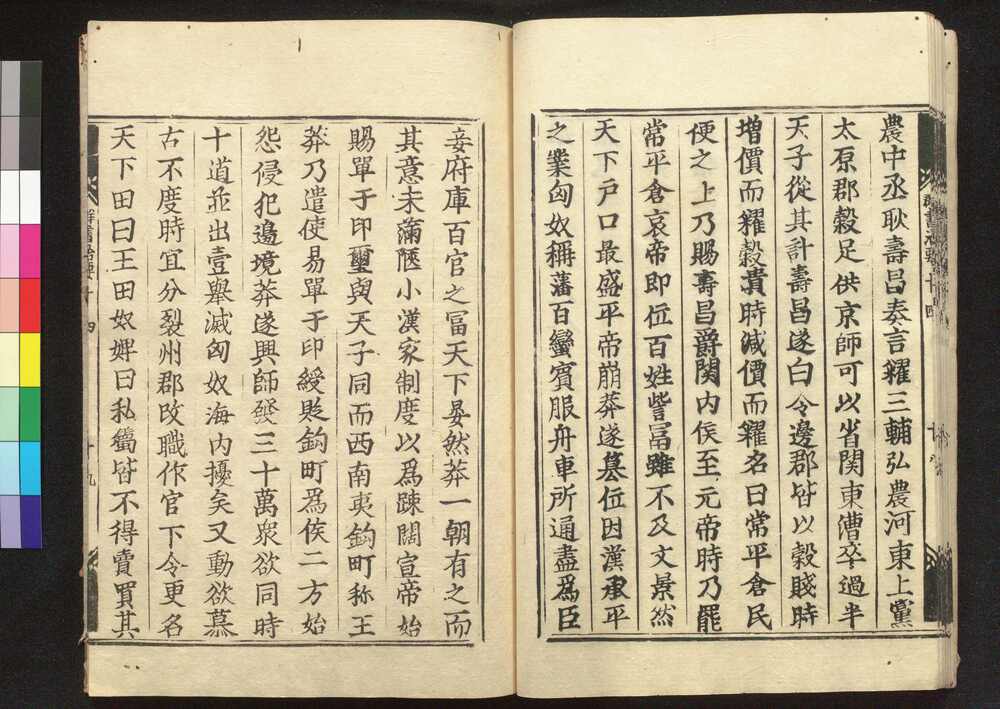 農中丞耿壽昌奏言糴三輔弘農河東上黨
太原郡穀足供京師可以省関東漕卒過半
天子從其計壽昌遂白令邊郡皆以穀賤時
增價而糴穀貴時減價而糶名曰常平倉民
便之上乃賜壽昌爵関内侯至元帝時乃罷
常平倉哀帝即位百姓訾冨雖不及文景然
天下戸口最盛平帝崩莽遂篡位因漢承平
之業匈奴稱藩百蠻賓服舟車所通盡爲臣
妾府庫百官之冨天下晏然莽一朝有之而
其意未滿陿小漢家制度以爲踈闊宣帝始
賜單于印璽與天子同而西南夷鈎町称王
莽乃遣使易單于印綬貶鈎町爲侯二方始
怨侵犯邊境莽遂興師發三十萬衆欲同時
十道並出壹舉滅匈奴海内擾矣又動欲慕
古不度時宜分裂州郡改職作官下令更名
天下田曰王田奴婢曰私屬皆不得賣買其
群書治要十四
十九